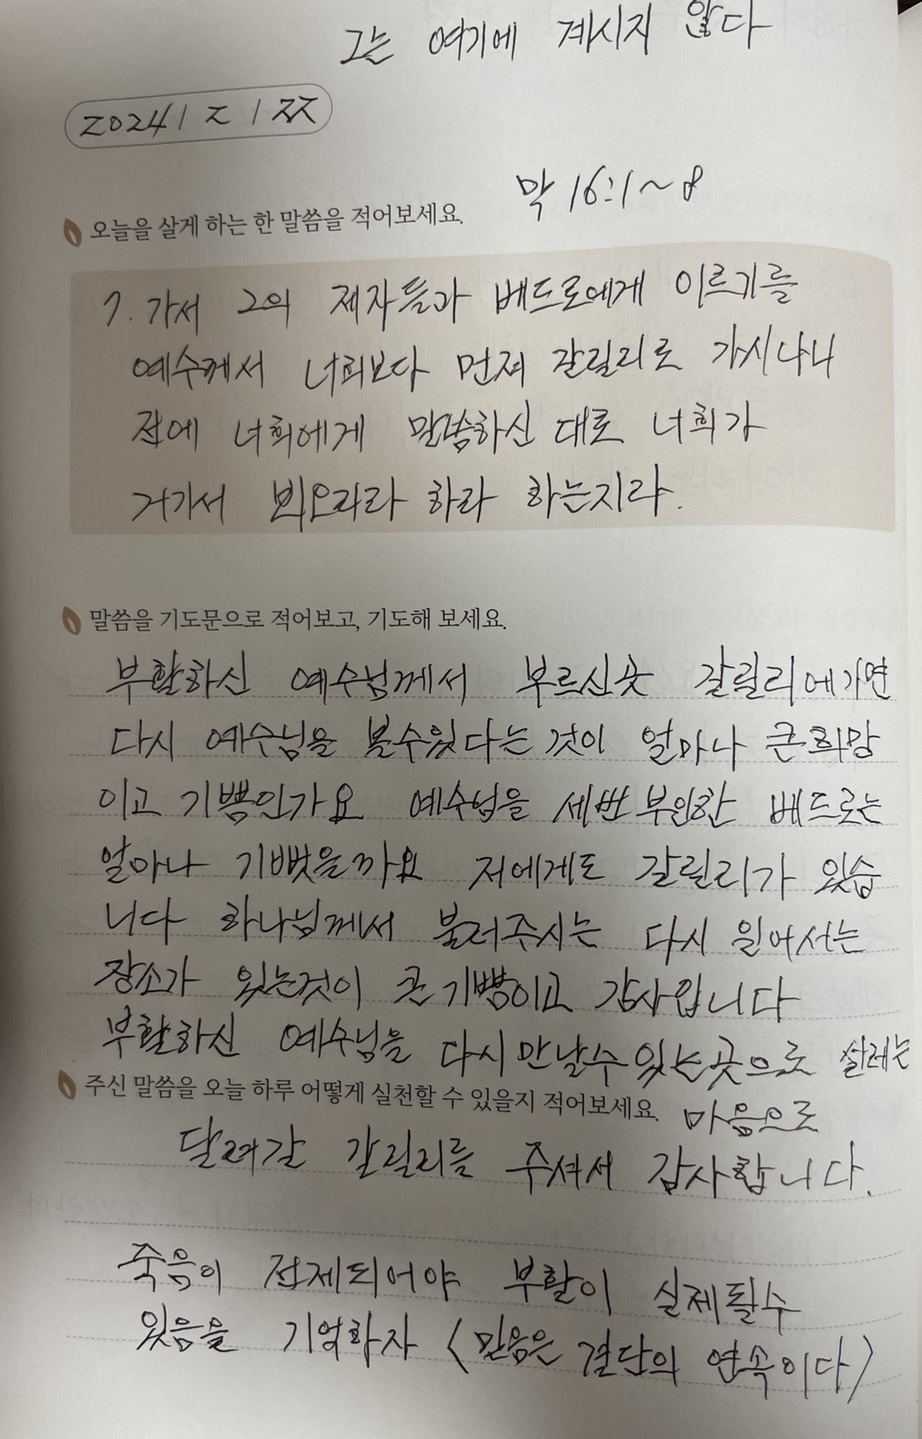 그는 여기에 계시지 않다
2024 / 2 / 22
막 16:1~8
오늘을 살게 하는 한 말씀을 적어보세요.
7. 가서 그의 제자들과 베드로에게 이르기를
예수께서 너희보다 먼저 갈릴리로 가시나니
전에 너희에게 말씀하신 대로 너희가
거기서 뵈오리라 하라 하는지라.
말씀을 기도문으로 적어보고, 기도해 보세요.
부활하신 예수님께서 부르신곳 갈릴리에가면
다시 예수님을 볼수있다는 것이 얼마나 큰희망
이고 기쁨인가요 예수님을 세번 부인한 베드로는
얼마나 기뻤을까요 저에게도 갈릴리가 있습
니다 하나님께서 불러주시는 다시 일어서는
장소가 있는것이 큰 기쁨이고 감사입니다
부활하신 예수님을 다시 만날수 있는곳으로 설레는
주신 말씀을 오늘 하루 어떻게 실천할 수 있을지 적어보세요.
마음으로
달려갈 갈릴리를 주셔서 감사합니다.
죽음이 전제되어야 부활이 실제될수
있음을 기억하자 <믿음은 결단의 연속이다>